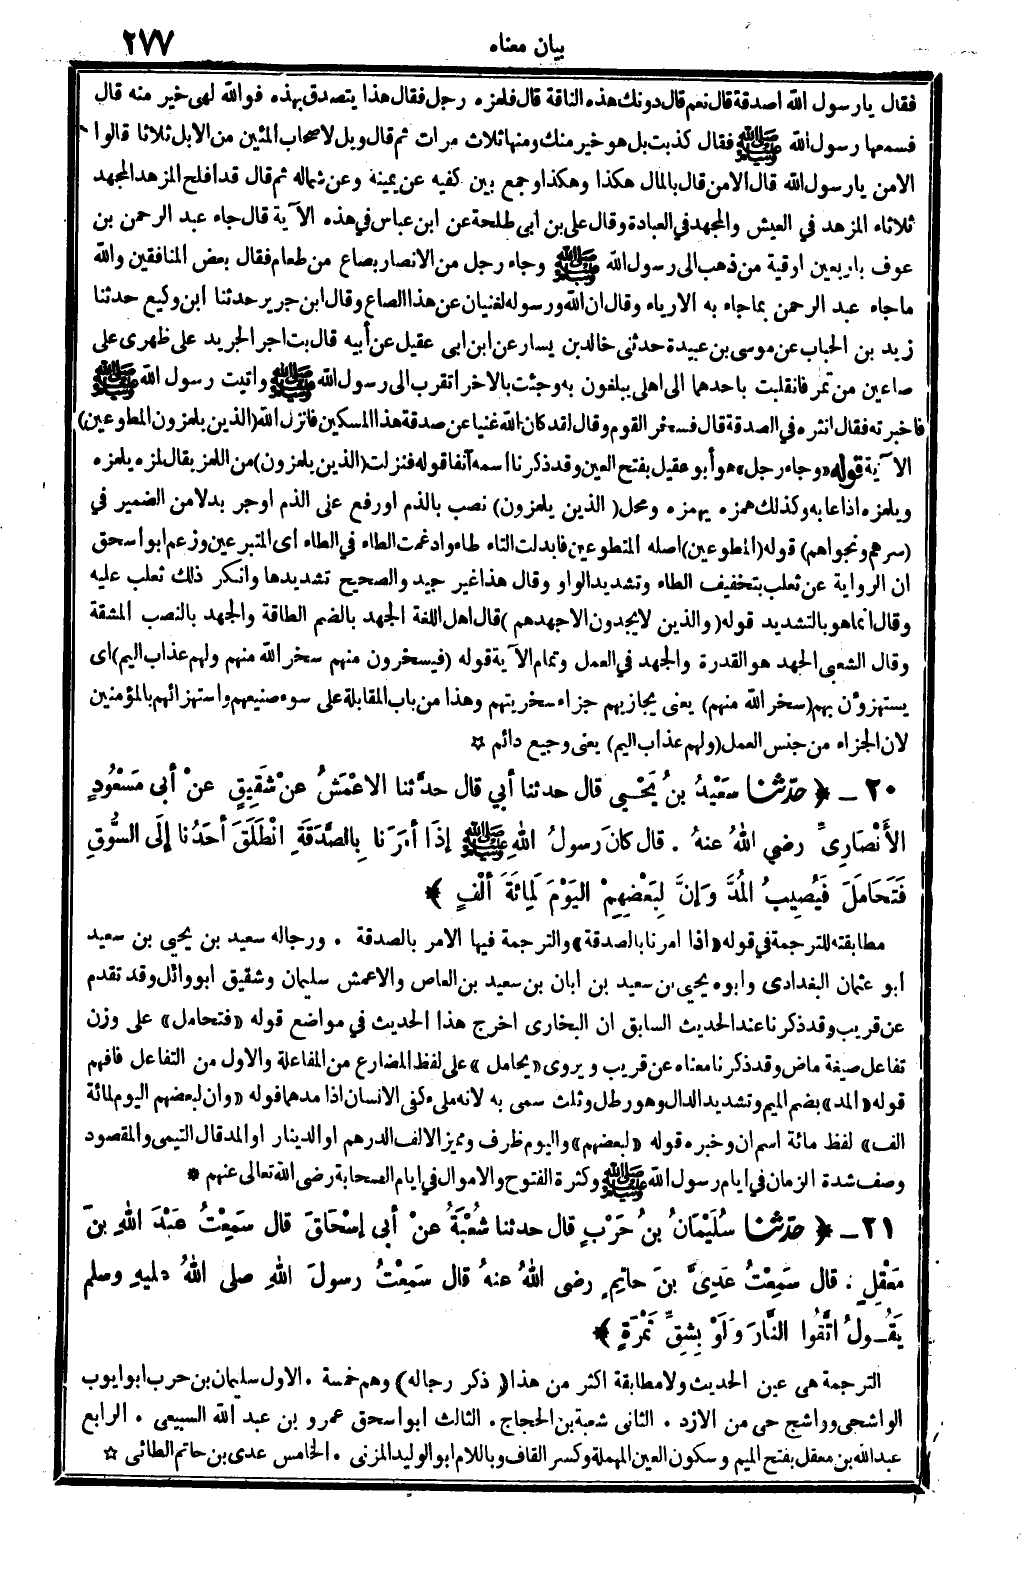 بيان معناه ٢٧٧
فقال يارسول الله اصدقة قال نعم قال دونك هذه الناقة قال فلمزه رجل فقال هذا يتصدق بهذه فوالله لهى خير منه قال
فسمعها رسول الله ﷺ فقال كذبت بل هو خير منك ومنها ثلاث مرات ثم قال ويل لاصحاب المئين من الابل ثلاثا قالوا
الامن يارسول الله قال الامن قال بالمال هكذا وهكذا وجمع بين كفيه عن يمينه وعن شماله ثم قال قد افلح المزهد المجهد
ثلاثاء المزهد في العيش والمجهد في العبادة وقال على بن ابى طلحة عن ابن عباس في هذه الآية قال جاء عبد الرحمن بن
عوف باربعين اوقية من ذهب الى رسول الله ﷺ وجاء رجل من الانصار بصاع من طعام فقال بعض المنافقين والله
ماجاء عبد الرحمن بماجاء به الارياء وقال ان الله ورسوله لغنيان عن هذا الصاع وقال ابن جرير حدثنا ابن وكيع حدثنا
زيد بن الحباب عن موسى بن عبيدة حدثنى خالد بن يسار عن ابن ابى عقيل عن أبيه قال بت اجر الجريد على ظهرى على
صاعين من تمر فانقلبت باحدهما الى اهلى يبلغون به وجئت بالآخر اتقرب الى رسول الله ﷺ واتيت رسول الله ﷺ
فاخبرته فقال انثره في الصدقة قال فسخر القوم وقال لقد كان الله غنيا عن صدقة هذا المسكين فانزل الله (الذين يلمزون المطوعين)
الآية قوله «وجاء رجل» هو أبو عقيل بفتح العين وقد ذكرنا اسمه آنفا قوله فنزلت (الذين يلمزون) من اللمز يقال لمزه يلمزه
ويلمزه اذا عابه وكذلك همزه يهمزه ومحل ( الذين يلمزون) نصب بالذم اورفع على الذم اوجر بدلا من الضمير في
(سرهم ونجواهم) قوله (المطوعين) اصله المتطوعين فابدلت التاء طاء وادغمت الطاء في الطاء اى المتبرعين وزعم ابو اسحق
ان الرواية عن ثعلب بتخفيف الطاء وتشديد الواو وقال هذا غير جيد والصحيح تشديدها وانكر ذلك ثعلب عليه
وقال انما هو بالتشديد قوله (والذين لايجدون الاجهدهم ) قال اهل اللغة الجهد بالضم الطاقة والجهد بالنصب المشقة
وقال الشعبى الجهد هو القدرة والجهد في العمل وتمام الآية قوله (فيسخرون منهم سخر الله منهم ولهم عذاب اليم) اى
يستهزؤن بهم (سخر الله منهم) يعنى يجازيهم جزاء سخريتهم وهذا من باب المقابلة على سوء صنيعهم واستهزائهم بالمؤمنين
لان الجزاء من جنس العمل (ولهم عذاب اليم) يعنى وجيع دائم ☆
٢٠ ــ ﴿ حدّثنا سَعْيِدُ بنُ يَحْيى قال حدثنا أبي قال حدَّثنا الاعْمَشُ عنْ شَقِيقٍ عنْ أبى مَسْعُودٍ
الأَنْصَارِىِّ رضي اللهُ عنهُ . قال كانَ رسولُ اللهِ ﷺ إذَا أمَرَنا بِالصَّدَقَةِ انْطَلَقَ أحَدُنا إلَى السُّوقِ
فَتَحَامَلَ فَيُصِيبُ المُدَّ وَإنَّ لِبَعْضِهِمْ اليَوْمَ لَمِائَةَ ألْفٍ ﴾
مطابقته للترجمة في قوله «اذا امرنا بالصدقة» والترجمة فيها الامر بالصدقة . ورجاله سعيد بن يحيى بن سعيد
أبو عثمان البغدادى وابوه يحيى بن سعيد بن ابان بن سعيد بن العاص والاعمش سليمان وشقيق ابو وائل وقد تقدم
عن قريب وقد ذكرنا عند الحديث السابق ان البخارى اخرج هذا الحديث في مواضع قوله «فتحامل» على وزن
تفاعل صيغة ماض وقد ذكرنا معناه عن قريب ويروى «يحامل» على لفظ المضارع من المفاعلة والاول من التفاعل فافهم
قوله «المد» بضم الميم وتشديد الدال وهو رطل وثلث سمى به لانه ملء كفى الانسان اذا مدهما قوله «وان لبعضهم اليوم لمائة
الف» لفظ مائة اسم ان وخبره قوله «لبعضهم» واليوم ظرف ومميز الالف الدرهم او الدينار او المد قال التيمى والمقصود
وصف شدة الزمان في ايام رسول الله ﷺ وكثرة الفتوح والاموال في ايام الصحابة رضى الله تعالى عنهم *
٢١ ــ ﴿ حدّثنا سُلَيْمَانُ بنُ حَرْبٍ قال حدثنا شُعْبَةُ عنْ أبى إسْحَاقَ قال سَمِعْتُ عَبْدَ اللهِ بنَ
مَعْقِلٍ . قال سَمِعْتُ عَدِىَّ بنَ حاتِمٍ رضى اللهُ عنهُ قال سَمِعْتُ رسولَ اللهِ صلى اللهُ عليهِ وسلم
يَقُولُ اتَّقُوا النَّارَ وَلَوْ بِشِقِّ تَمْرَةٍ ﴾
الترجمة هى عين الحديث ولا مطابقة اكثر من هذا ( ذكر رجاله ) وهم خمسة . الاول سليمان بن حرب ابو ايوب
الواشحى وواشح حى من الازد . الثانى شعبة بن الحجاج . الثالث ابو اسحق عمرو بن عبد الله السبيعى . الرابع
عبدالله بن معقل بفتح الميم وسكون العين المهملة وكسر القاف وباللام ابو الوليد المزنى . الخامس عدى بن حاتم الطائى ☆